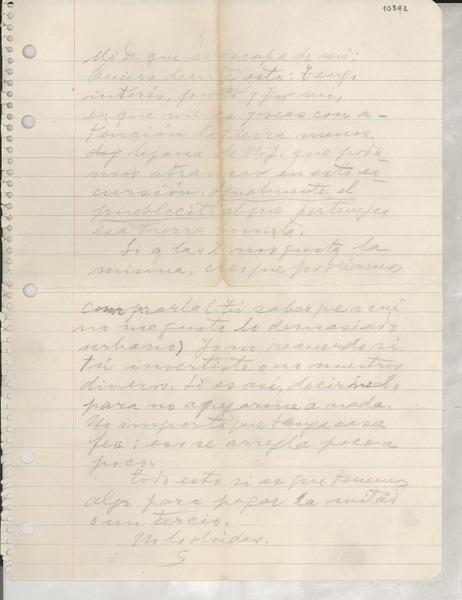 10342
Mi D. que se escapa de mí:
Quiero decirte esto: tengo
interés, por ti y por mí,
en que mires y veas con a-
tención la tierra menos
lejana de N.Y. que poda-
mos abarcar en esta es-
cursión. Igualmente el
pueblecito al que pertenezca
esa tierra
Si a las 2 nos gusta la
misma, creo que podríamos
comprarla (tú sabes que a mí
no me gusta lo demasiado
urbano) Yo no recuerdo si
tú invertiste o no nuestros
dineros. Si es así, decírmelo
para no apegarme a nada.
No importa que tenga casa
fea: eso se arregla poco a
poco.
Todo esto si es que tenemos
algo para pagar la mitad
o un tercio.
No lo olvides.